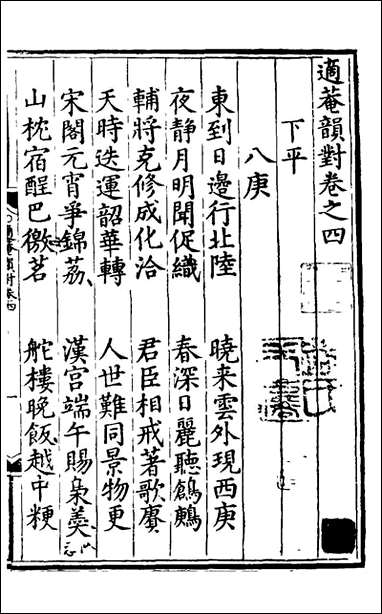 適菴韻對卷之四
下平
八庚
東到日邊行北陸　曉来雲外現西庚
夜靜月明聞促織　春深日麗聽鶬鶊
輔將克修成化洽　君臣相戒著歌賡
天時迭運韶華轉　人世難同景物更
宋閣元宵爭錦荔　漢宫端午賜梟羮
山枕宿酲巴徼茗　舵樓晚飯越中粳
適菴韻對卷四
一